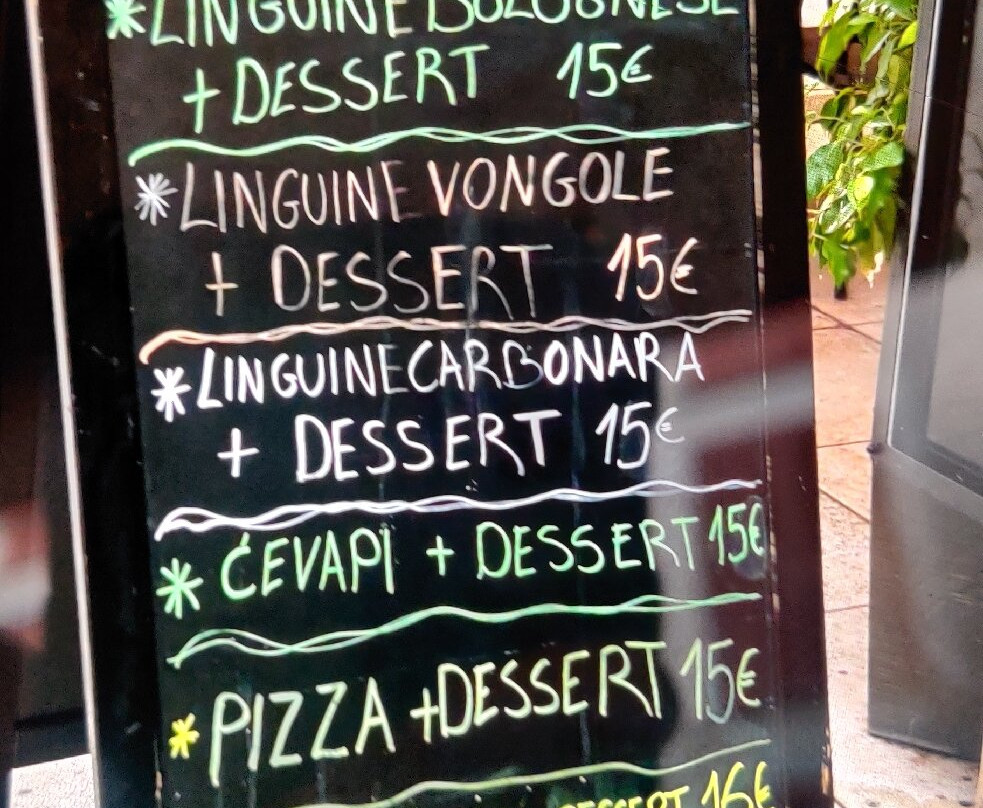 *LINGUINE BOLOGNESE
+DESSERT 15€
*LINGUINE VONGOLE
+ DESSERT 15€
*LINGUINE CARBONARA
+ DESSERT 15€
*ĆEVAPI + DESSERT 15€
*PIZZA +DESSERT 15€
DESSERT 16€